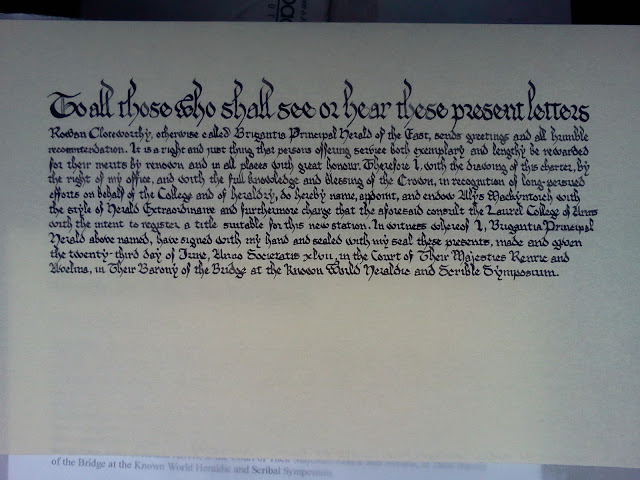 To all those who shall see or hear these present letters
Rowan Cloteworthy, otherwise called Brigantia Principal Herald of the East, sends greetings and all humble
recommendation. It is a right and just thing that persons offering service both exemplary and lengthy be rewarded
for their merits by renown and in all places with great honour. Therefore I, with the drawing of this charter, by
the right of my office, and with the full knowledge and blessing of the Crown, in recognition of long-pursued
efforts on behalf of the College and of heraldry, do hereby name, appoint, and endow Alys Mackyntoich with
the style of Herald Extraordinaire and furthermore charge that the aforesaid consult the Laurel College of Arms
with the intent to register a title suitable for this new station. In witness whereof I, Brigantia Principal
Herald above named, have signed with my hand and sealed with my seal these presents, made and given
the twenty-third day of June, Anno Societatis xlvii, in the Court of Their Majesties Kenric and
Avelina, in Their Barony of the Bridge at the Known World Heraldic and Scribal Symposium.
of the Bridge at the Known World Heraldic and Scribal Symposium